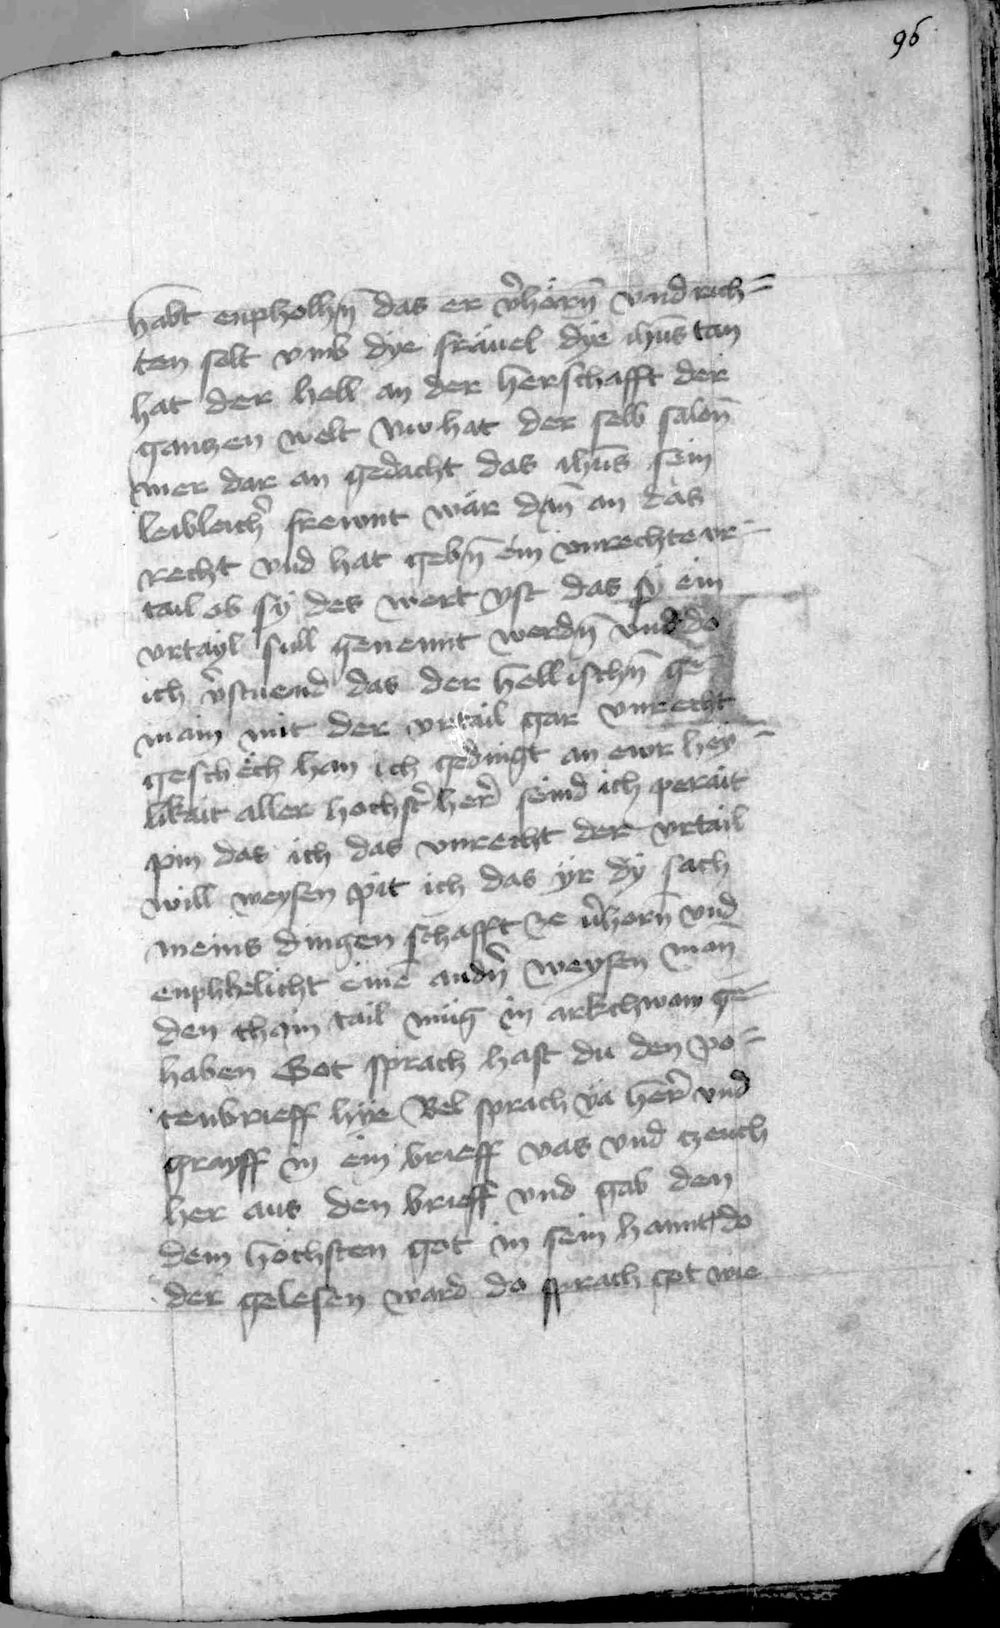 96
habt enpholhn̄ das er v̓hörn̄ vnd rich-
ten solt vmb dÿe fräuel dÿe ihūs tan
hat der hell an der herschafft der
ganczen welt Nw hat der selb salon̄
mer dar an gedacht das ihūs sein
leibleich̓ frewnt wär dan̄ an das
recht vnd hat gebn̄ ein vnrechte vr-
tail ob sÿ des wert yst das sÿ ein
vrtayl süll genennt werdn̄ vnd do
ich v̓stuend das der hellischn̄ ge-
main mit der vrtail gar vnrecht
geschëch han ich gedingt an ewr hey-
likait aller hochst̓ her̓ seind ich perait
pin das ich das vnrecht der vrtail
will weysen pit ich das ÿr dÿ sach
meins dingen schafft ze v̓horn̄ vnd
enphhelicht eine andn̓ weysen man̄
den chain tail müg in arkchwan ge-
haben Got sprach hast du den po-
tenbrieff hÿe Bel sprach ya her̓ vnd
grayff in ein brieff vas vnd czeuch
her aus den brieff vnd gab den
dem höchsten got in sein hannt do
der gelesen ward do sprach got wie